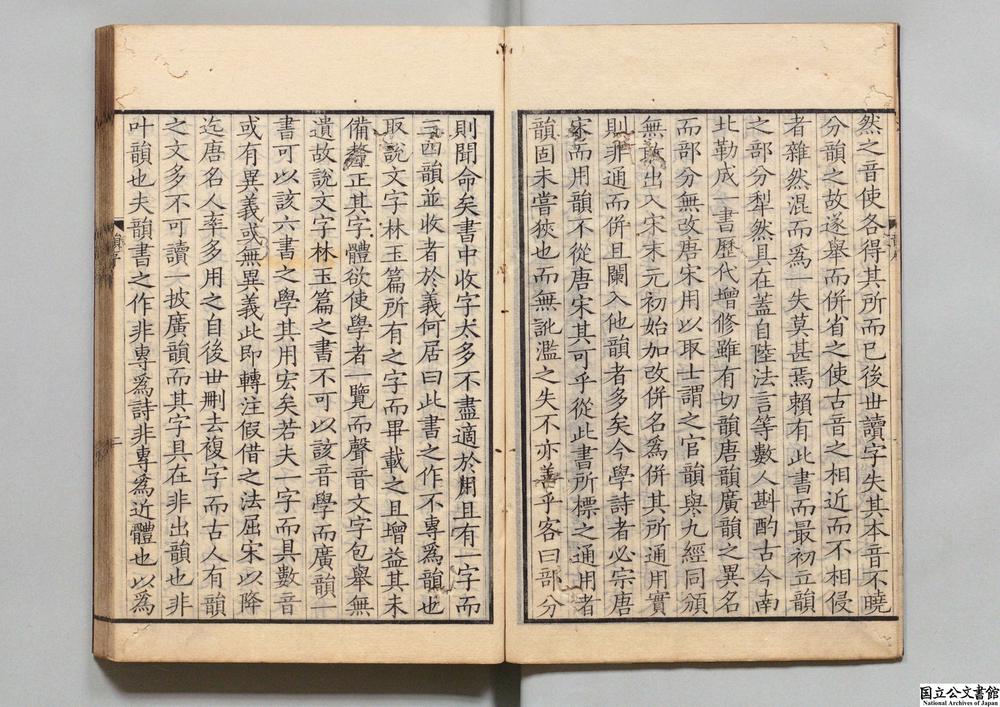 然之音使各得其所而已後世讀字失其本音不曉
分韻之故遂舉而併省之使古音之相近而不相侵
者雜然混而為一失莫甚焉賴有此書而最初立韻
之部分犁然具在蓋自陸法言等數人斟酌古今南
北勒成一書歷代增修雖有切韻唐韻廣韻之異名
而部分無改唐宋用以取士謂之官韻與九經同頒
無敢出入宋末元初始加改併名為併其所通用實
則非通而併且闌入他韻者多矣今學詩者必宗唐
宋而用韻不從唐宋其可乎從此書所標之通用者
韻固未嘗狹也而無訛濫之失不亦善乎客曰部分
則聞命矣書中收字太多不盡適於用且有一字而
三四韻並收者於義何居曰此書之作不專為韻也
取說文字林玉篇所有之字而畢載之且增益其未
備釐正其字體欲使學者一覽而聲音文字包舉無
遺故說文字林玉篇之書不可以該音學而廣韻一
書可以該六書之學其用宏矣若夫一字而具數音
或有異義或無異義此即轉注假借之法屈宋以降
迄唐名人率多用之自後世刪去複字而古人有韻
之文多不可讀一披廣韻而其字具在非出韻也非
叶韻也夫韻書之作非專爲詩非專爲近體也以爲
国立公文書館
National Archives of Japan